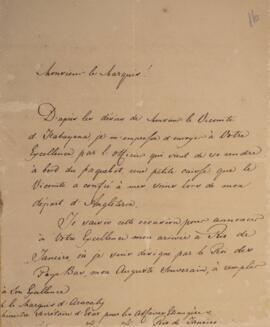 16
Monsieur le Marquis!
D'après les désirs de Monsr. le Vicomte
d'Itabayana, je m'empresse d'envoyer à Votre
Excellence par l'officier qui vient de se rendre
à bord du paquebot, une petite caisse que le
Vicomte a confiée à mes soins lors de mon
départ d'Angleterre.
Je saisis cette occasion pour annoncer
à Votre Excellence mon arrivée à Rio de
Janeiro où je viens chargé par le Roi des
Pays Bas, mon Auguste Souverain, à remplir
à Son Excellence
le Marquis d'Aracaty
Secrétaire d'Etat pour les Affaires Etrangères
Rio de Janeiro